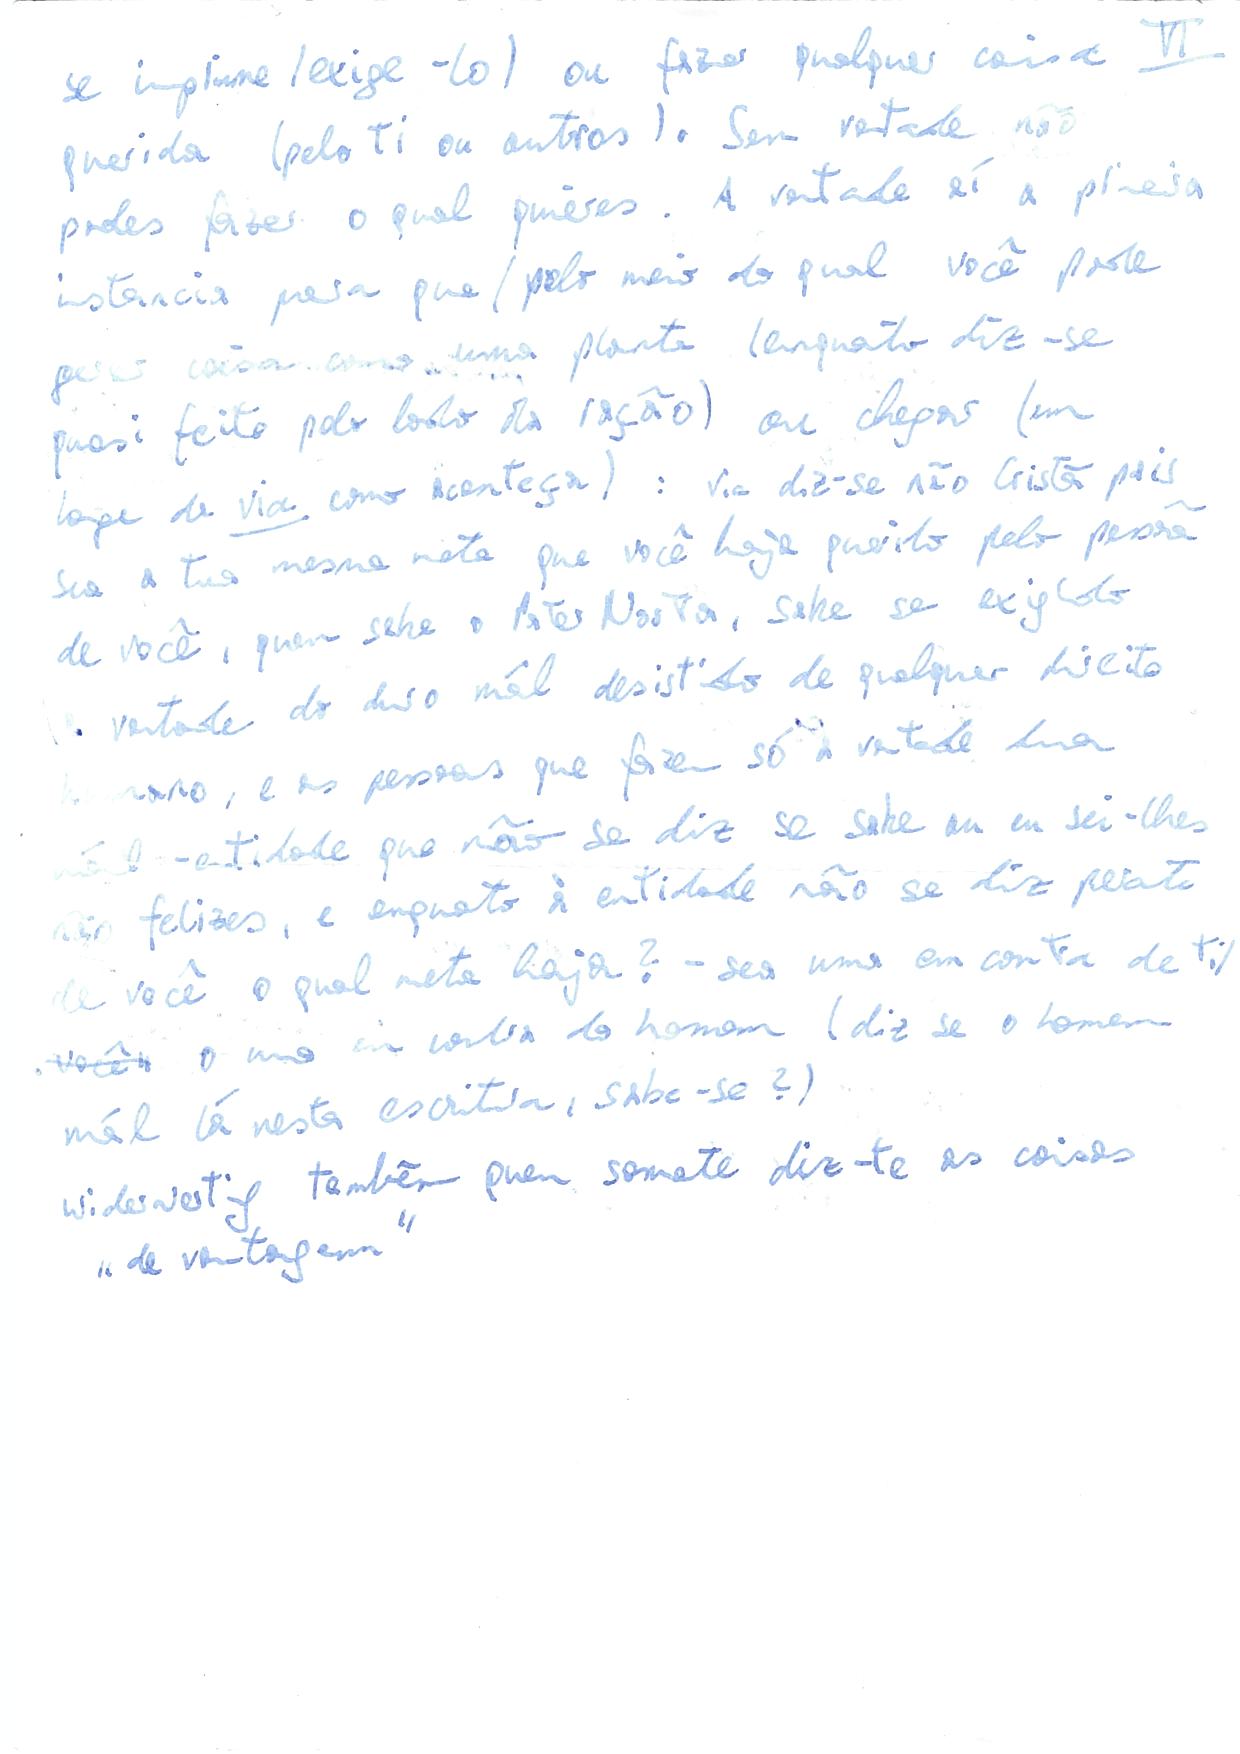 se implume (exige-lo) ou fazer qualquer coisa VI
querida (pelo Ti ou outros). Sem vontade não
podes fazer o qual quieres. A vontade aí a pimeira
instancia para que / pelo meio do qual você pode
gerar coisa como uma planta (enquato diz-se
quasi feito pelo lado da ração) ou chegar (um
large de via como aconteça) : via diz-se não Cristã pois
sea a tua mesma meta que você haja querido pelo
de você, quem sabe o Pater Nostra, sabe se exigido
vontade do duro mál desistido de qualquer direito
humano, e as pessoas que fazem só a vontade dua
mál-entidade que não se diz se sabe ou eu sei-lhes
não felizes, e enquato à entidade não se diz perate
de você o qual meta haja? - sea uma em contra de ti/
você" o uma in contra do homem (diz se o homem
mál lá nesta escritura, sabe-se?)
também quem somate diz-te as coisas
„ de vantagem "